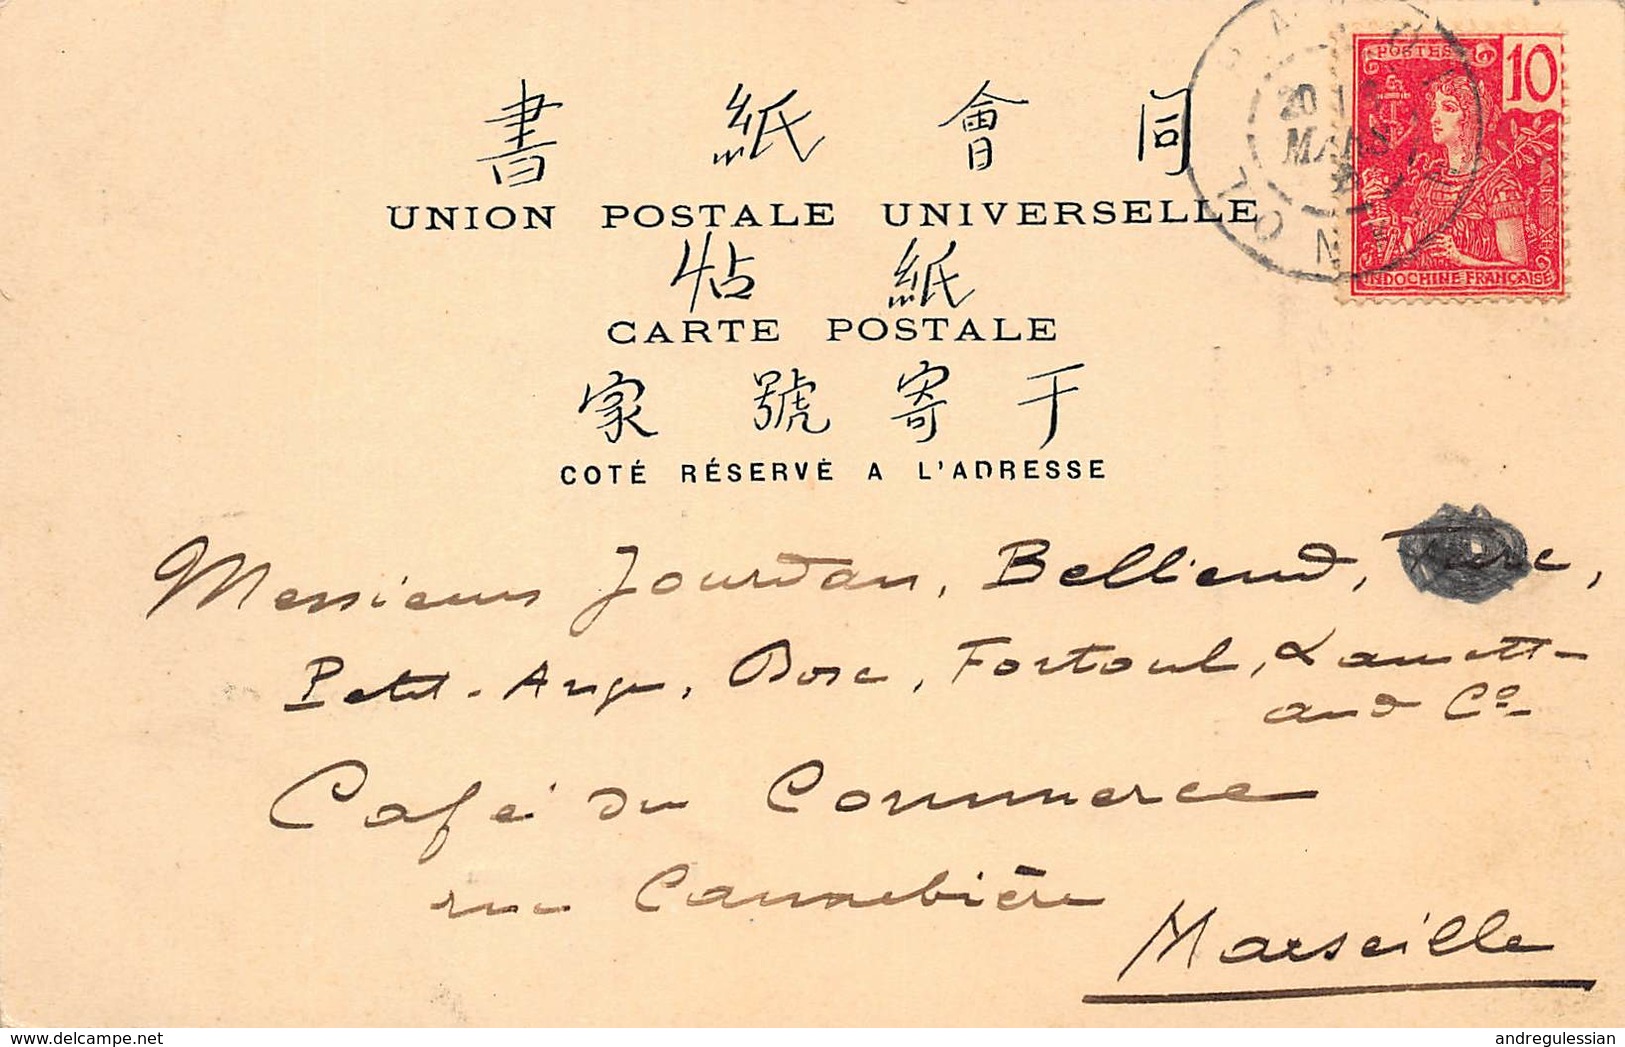 書 紙 會 同
UNION POSTALE UNIVERSELLE
帖 紙
CARTE POSTALE
家 號 寄 于
COTÉ RÉSERVÉ A L'ADRESSE
POSTES 10
INDOCHINE FRANÇAISE
20 MARS
Messieurs Jourdan, Belliend,
Petit-Ange, Bosc, Fortoul, Lamotte
and Cº
Café du Commerce
rue Cannebière
Marseille
andregulessian